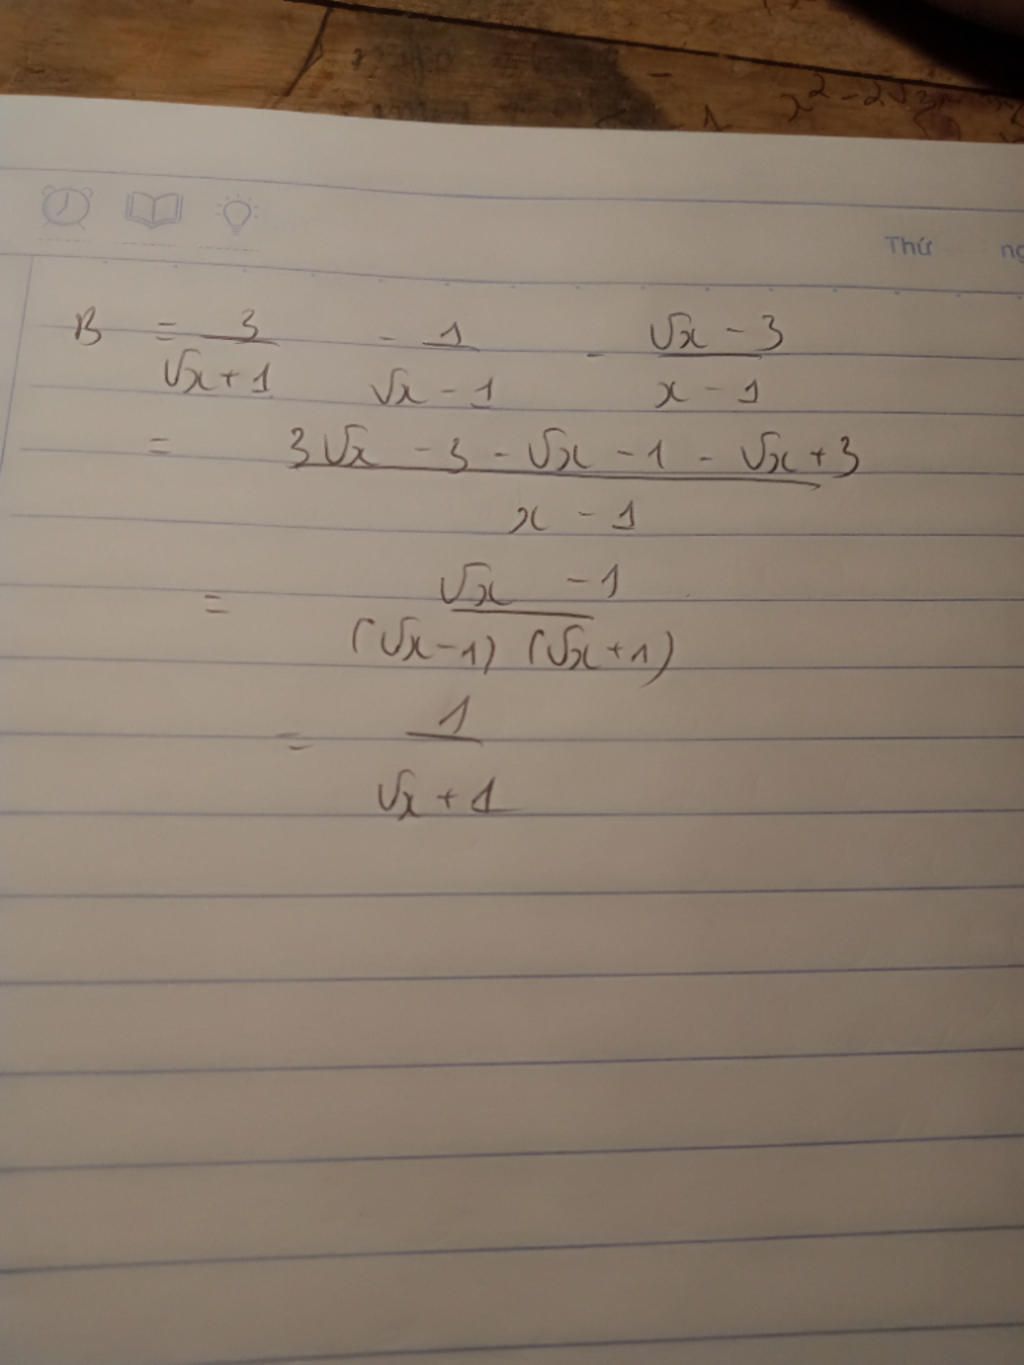 x² - 2√3
- 1
Thứ ng
B = 3/(√x + 1) - 1/(√x - 1) - (√x - 3)/(x - 1)
= (3√x - 3 - √x - 1 - √x + 3)/(x - 1)
= (√x - 1)/((√x - 1) (√x + 1))
= 1/(√x + 1)